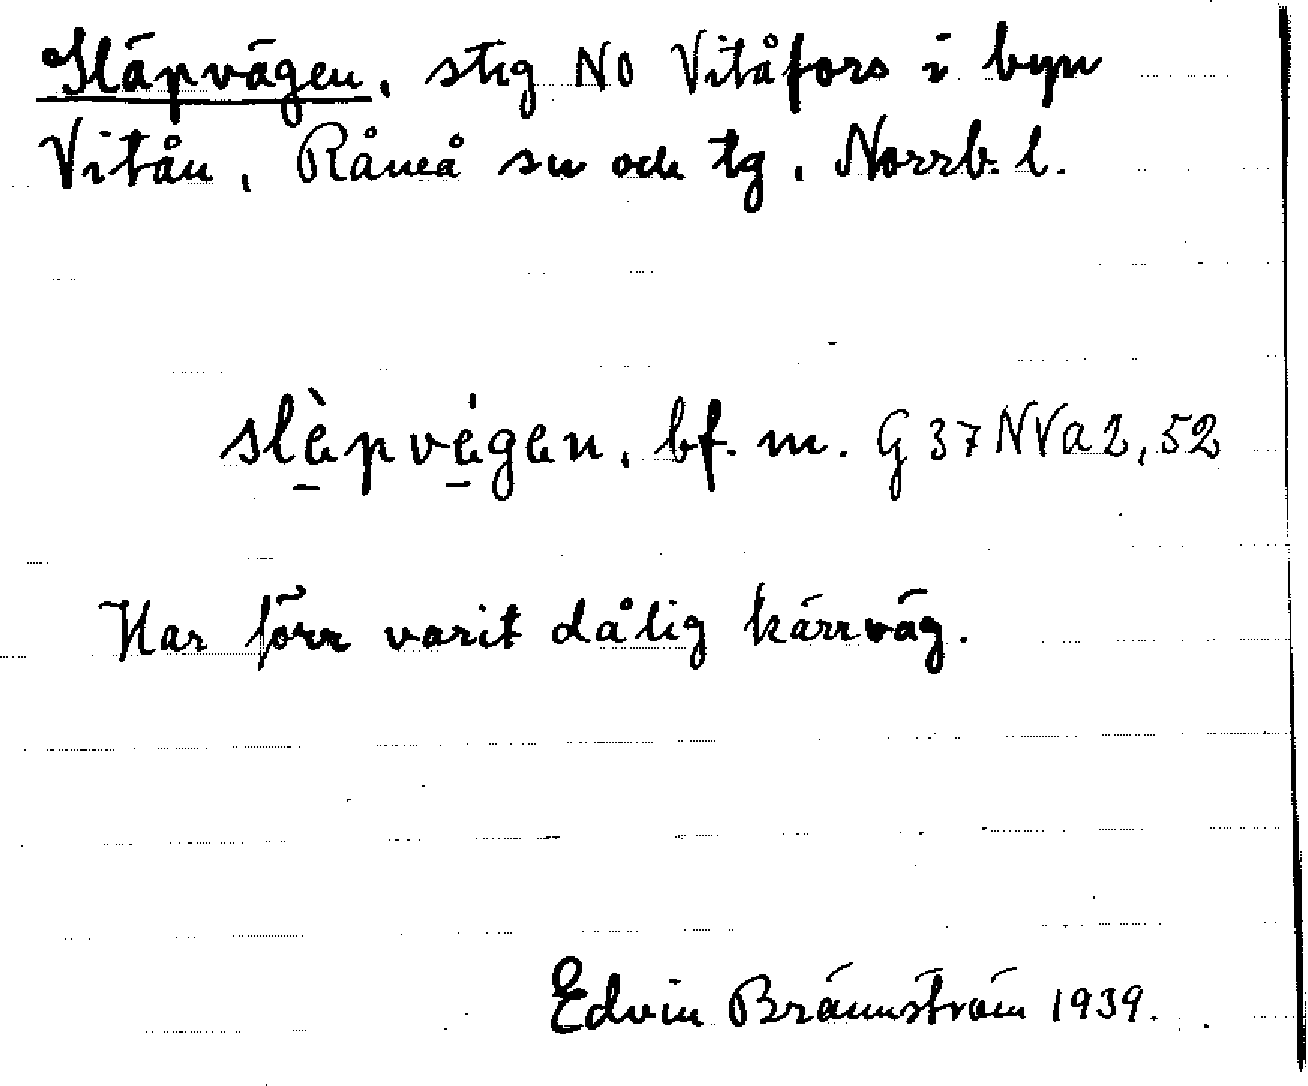 Släpvägen, stig NO Vitåfors i byn
Vitån, Råneå sn och tg, Norrb. l.
slèpvégen, bf. m. G 37 NVa2, 52
Har förr varit dålig kärrväg.
Edvin Brännström 1939.